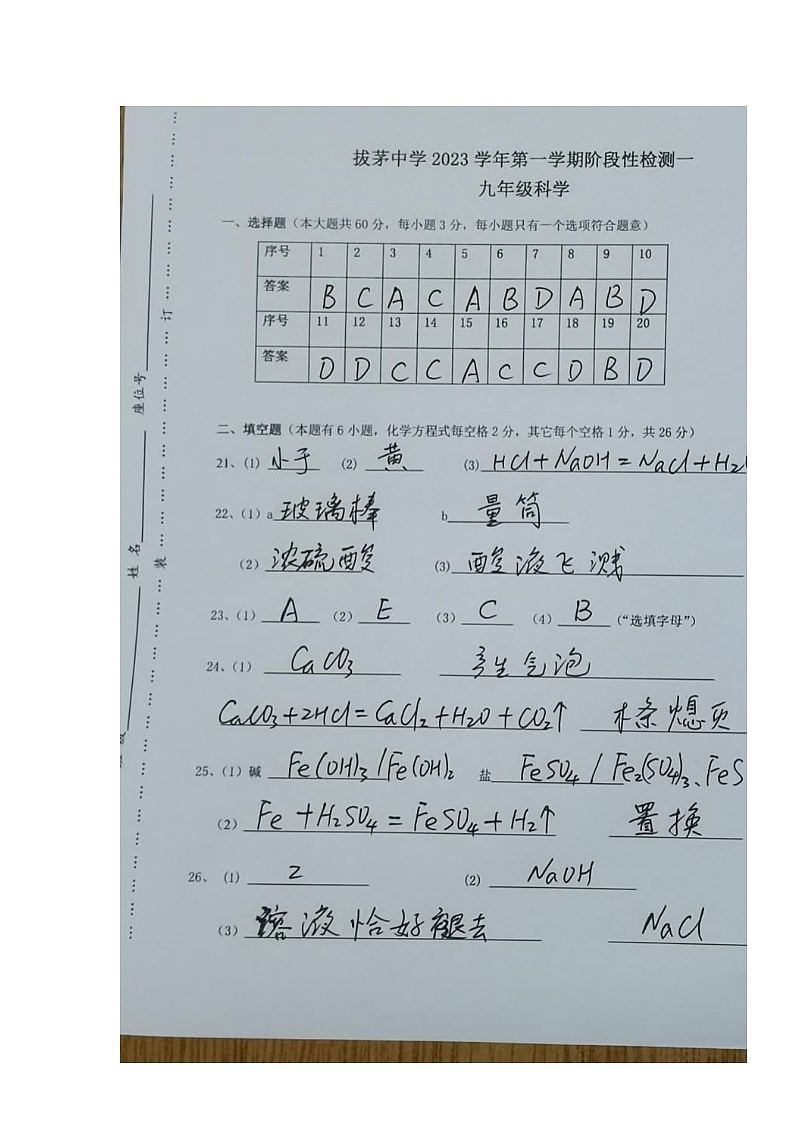 拔茅中学2023学年第一学期阶段性检测一
九年级科学
一、选择题（本大题共60分，每小题3分，每小题只有一个选项符合题意）
序号 1 2 3 4 5 6 7 8 9 10
答案 B C A C A B D A B D
序号 11 12 13 14 15 16 17 18 19 20
答案 D D C C A C C D B D
二、填空题（本题有6小题，化学方程式每空格2分，其它每个空格1分，共26分）
21、(1) 小于 (2) 黄 (3) HCl+NaOH=NaCl+H₂O
22、(1) a 玻璃棒 b 量筒
(2) 浓硫酸 (3) 酸液飞溅
23、(1) A (2) E (3) C (4) B （“选填字母”）
24、(1) CaCO₃ 产生气泡
CaCO₃+2HCl=CaCl₂+H₂O+CO₂↑ 木条熄灭
25、(1) 碱 Fe(OH)₃/Fe(OH)₂ 盐 FeSO₄/Fe₂(SO₄)₃、FeS
(2) Fe+H₂SO₄=FeSO₄+H₂↑ 置换
26、(1) 2 (2) NaOH
(3) 溶液恰好褪去 NaCl
座位号
姓名
装
订